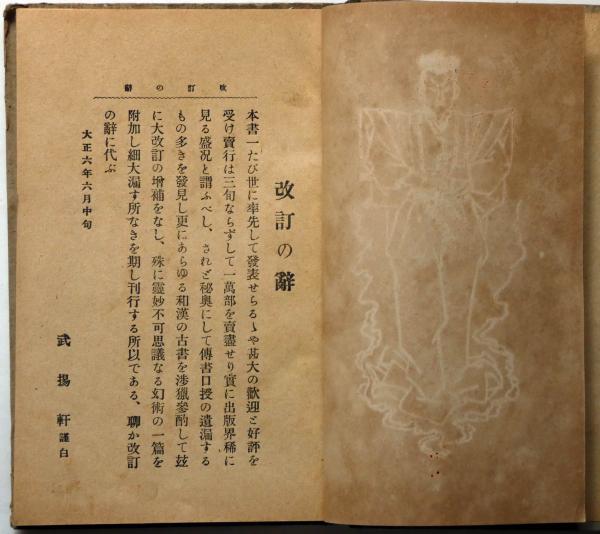 改訂の辭
改訂の辭
本書一たび世に率先して發表せらるゝや甚大の歡迎と好評を
受け賣行は三旬ならずして一萬部を賣盡せり實に出版界稀に
見る盛况と謂ふべし、されど秘奥にして傳書口授の遺漏する
もの多きを發見し更にあらゆる和漢の古書を渉獵參酌して玆
に大改訂の增補をなし、殊に靈妙不可思議なる幻術の一篇を
附加し細大漏す所なきを期し刊行する所以である、聊か改訂
の辭に代ぶ
大正六年六月中旬
武揚軒謹白